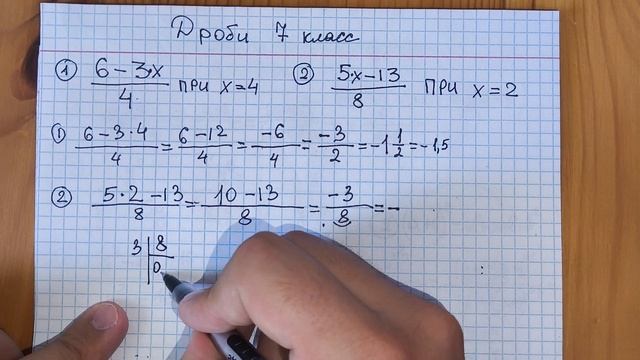 Дроби 7 класс
① (6 − 3·x)/4 при x=4 ② (5·x−13)/8 при x=2
① (6 − 3·4)/4 = (6 −12)/4 = −6/4 = −3/2 = −1 1/2 = −1,5
② (5·2 −13)/8 = (10 −13)/8 = −3/8 = −
3 8
0,